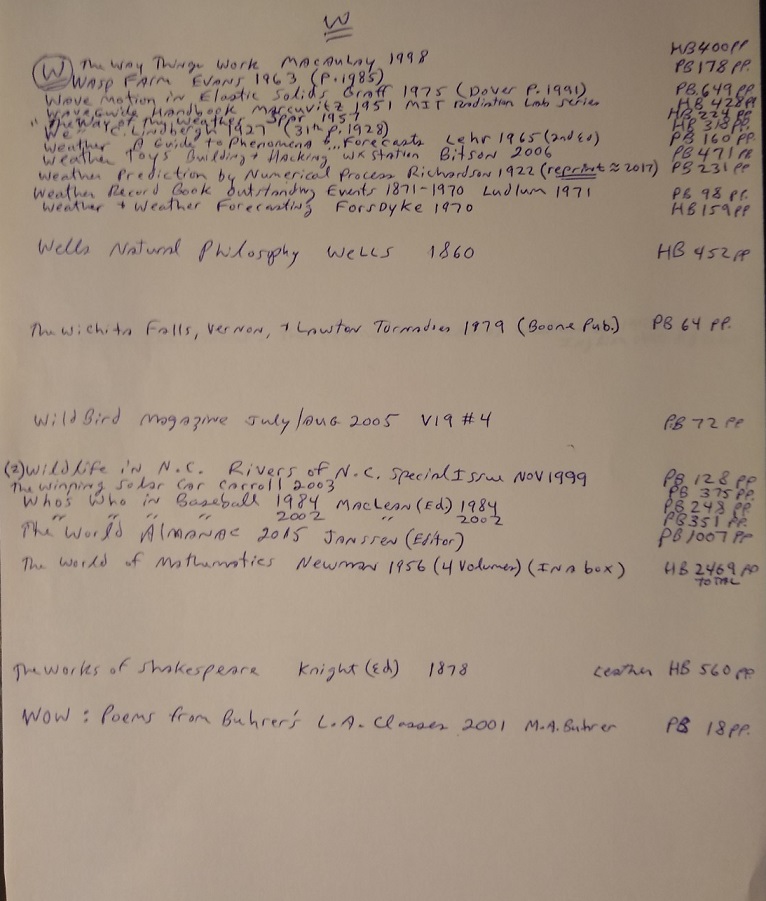 W
(W) The Way Things Work Macaulay 1998 HB 400 pp
Wasp Farm Evans 1963 (P. 1985) PB 178 pp.
Wave Motion in Elastic Solids Graff 1975 (Dover P. 1991) PB 649 pp
Waveguide Handbook Marcuvitz 1951 MIT Radiation Lab series HB 428 pp
" The Way of the Weather Spar 1957 HB 224 pp.
"We" Lindbergh 1927 (31th P. 1928) HB 318 pp.
Weather A Guide to Phenomena &... Forecasts Lehr 1965 (2nd Ed) PB 160 pp.
Weather Toys Building + Hacking WX Station Bitson 2006 PB 471 pp
Weather Prediction by Numerical Process Richardson 1922 (reprint ≈ 2017) PB 231 pp.
Weather Record Book Outstanding Events 1871-1970 Ludlum 1971 PB 98 pp.
Weather + Weather Forecasting Forsdyke 1970 HB 159 pp
Wells Natural Philosophy Wells 1860 HB 452 pp
The Wichita Falls, Vernon, + Lawton Tornadoes 1979 (Boone Pub.) PB 64 pp.
WildBird Magazine July/Aug 2005 V19 #4 PB 72 pp
(2) Wildlife in N.C. Rivers of N.C. Special Issue Nov 1999 PB 128 pp
The Winning Solar Car Carroll 2003 PB 375 pp.
Who's Who in Baseball 1984 MacLean (Ed.) 1984 PB 248 pp
" " " " 2002 " 2002 PB 351 pp.
The World Almanac 2015 Janssen (Editor) PB 1007 pp
The World of Mathematics Newman 1956 (4 Volumes) (In a box) HB 2469 pp
TOTAL
The Works of Shakespeare Knight (Ed) 1878 Leather HB 560 pp.
WOW: Poems from Buhrer's L.A. Classes 2001 M.A. Buhrer PB 18 pp.